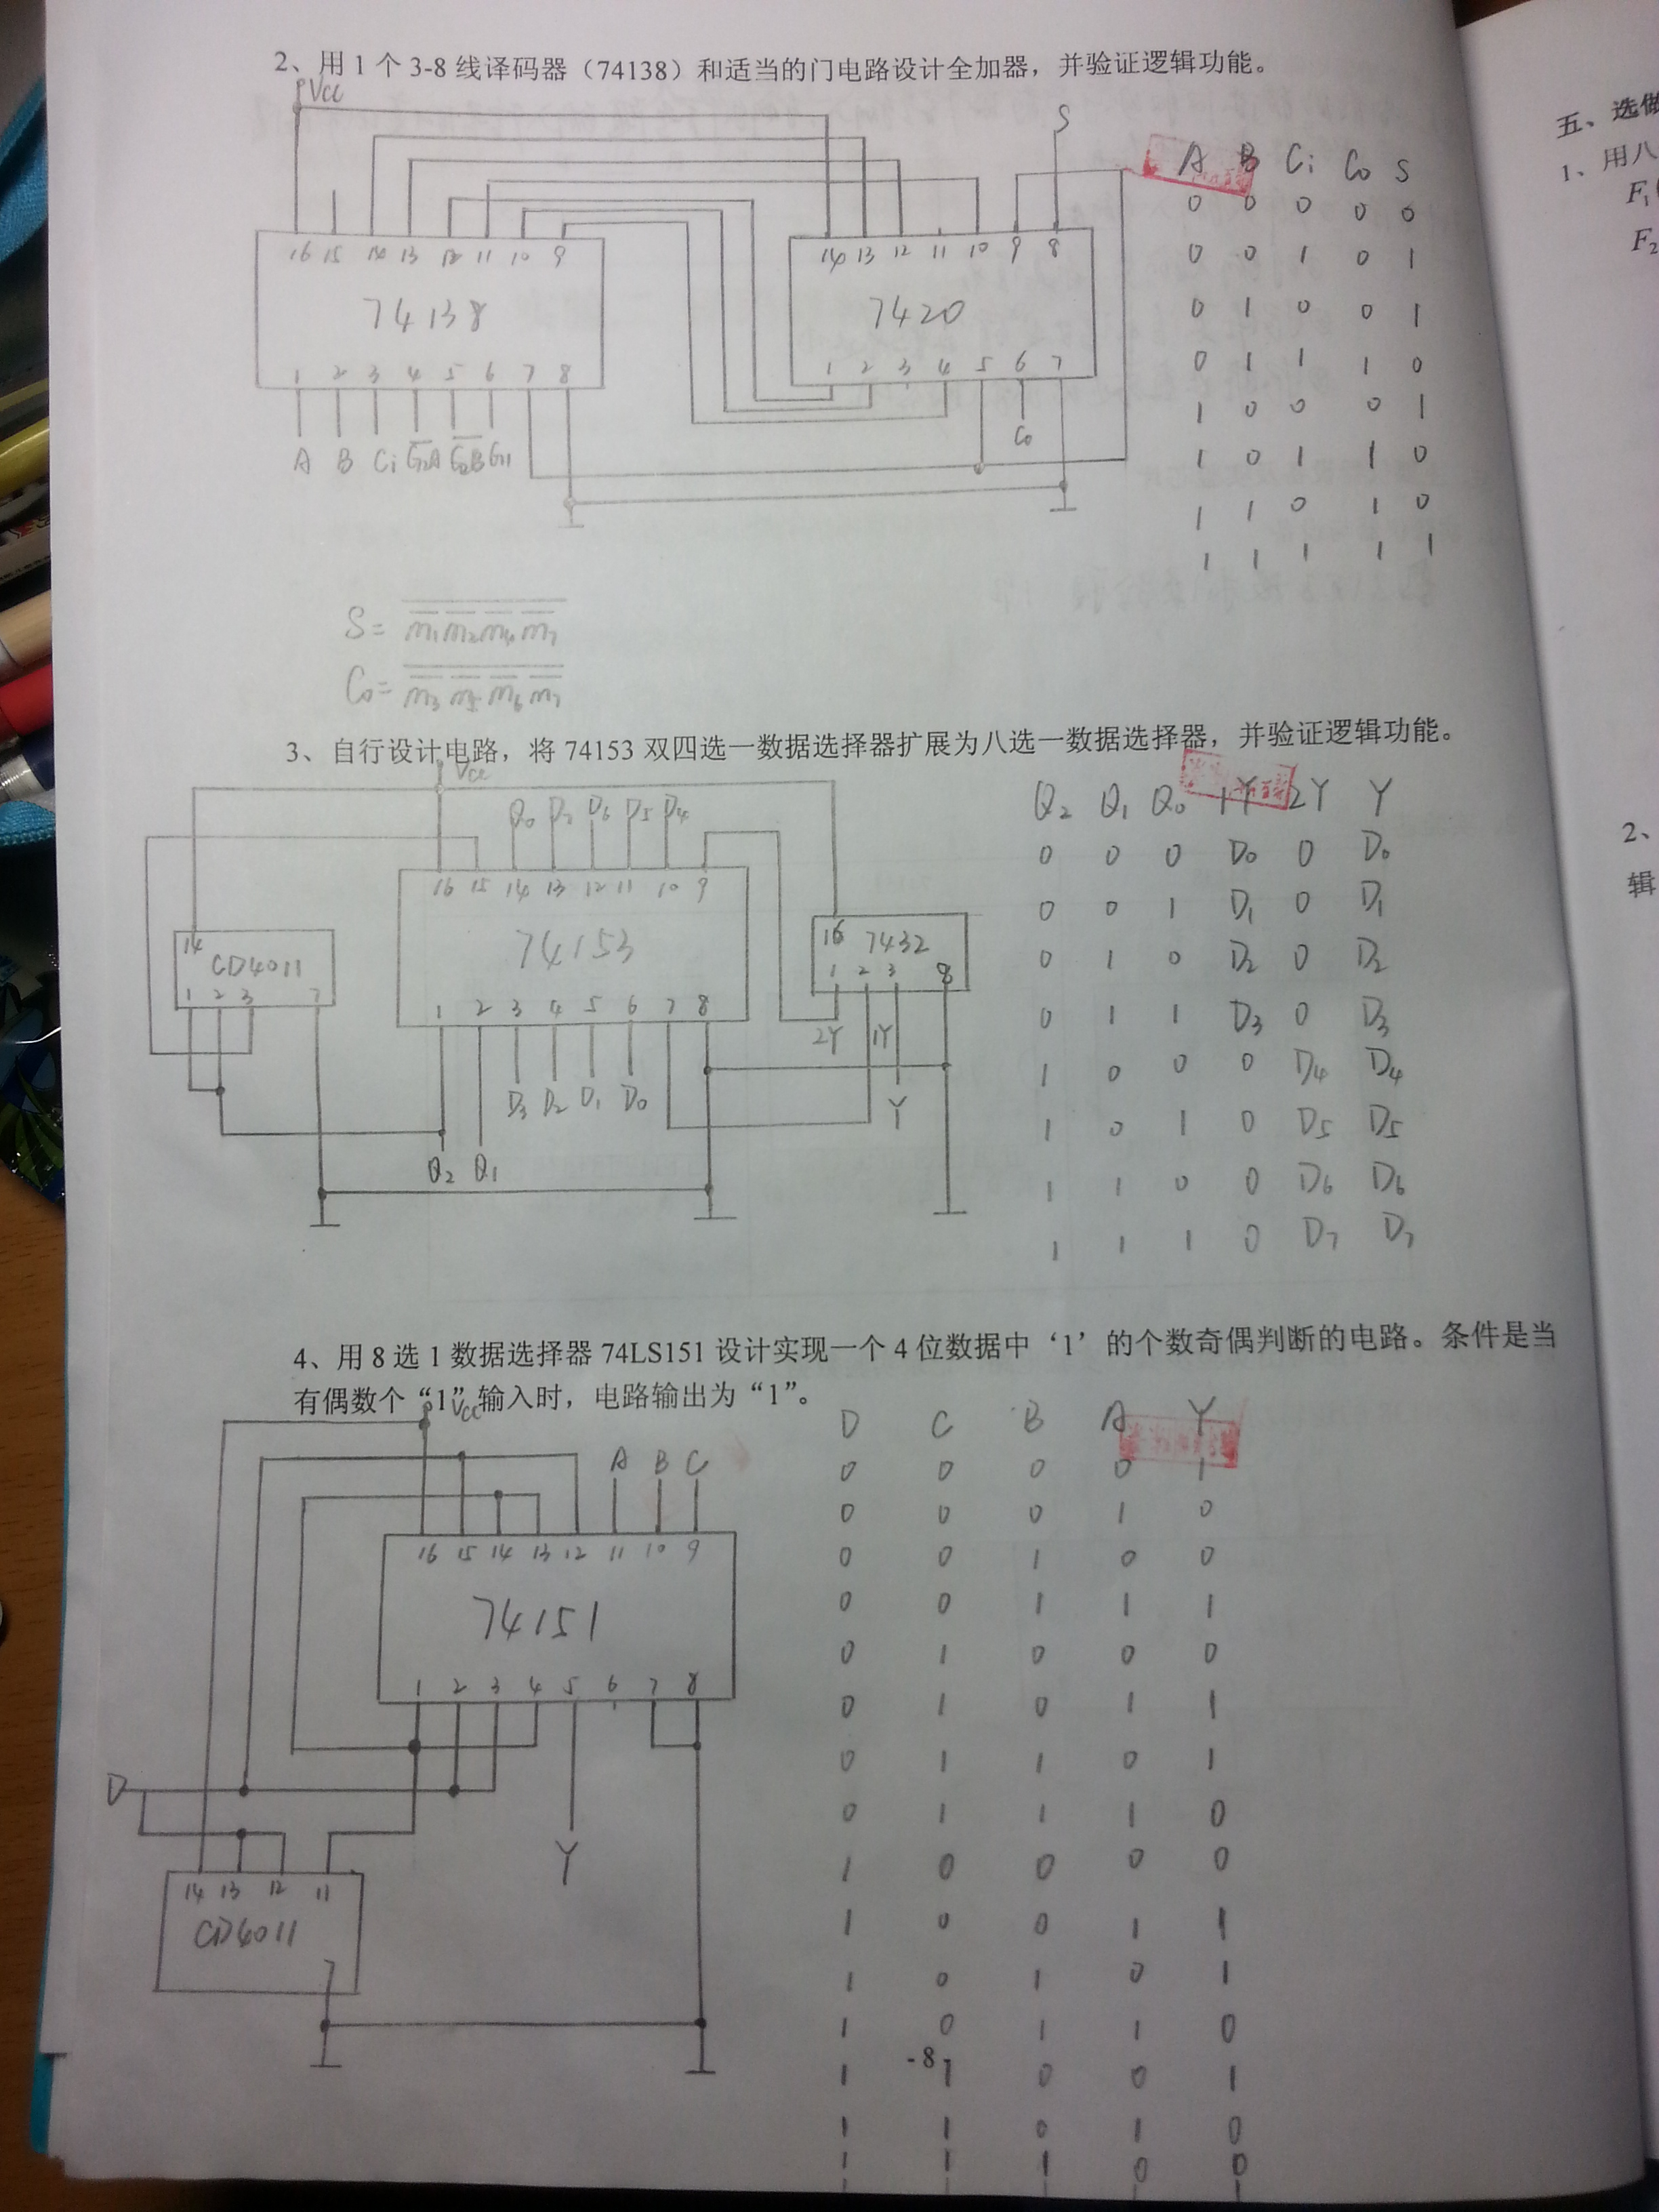 2、用 1 个 3-8 线译码器（74138）和适当的门电路设计全加器，并验证逻辑功能。
Vcc
S
16 15 14 13 12 11 10 9
74138
1 2 3 4 5 6 7 8
A B Ci G̅2A G̅2B G1
14 13 12 11 10 9 8
7420
1 2 3 4 5 6 7
Co
A B Ci Co S
0 0 0 0 0
0 0 1 0 1
0 1 0 0 1
0 1 1 1 0
1 0 0 0 1
1 0 1 1 0
1 1 0 1 0
1 1 1 1 1
S = m1 m2 m4 m7
Co = m3 m5 m6 m7
3、自行设计电路，将 74153 双四选一数据选择器扩展为八选一数据选择器，并验证逻辑功能。
Vcc
Q0 D7 D6 D5 D4
16 15 14 13 12 11 10 9
74153
1 2 3 4 5 6 7 8
D3 D2 D1 D0
Q2 Q1
14
CD4011
1 2 3 7
16 7432
1 2 3 8
2Y 1Y
Y
Q2 Q1 Q0 1Y 2Y Y
0 0 0 D0 0 D0
0 0 1 D1 0 D1
0 1 0 D2 0 D2
0 1 1 D3 0 D3
1 0 0 0 D4 D4
1 0 1 0 D5 D5
1 1 0 0 D6 D6
1 1 1 0 D7 D7
4、用 8 选 1 数据选择器 74LS151 设计实现一个 4 位数据中‘1’的个数奇偶判断的电路。条件是当
有偶数个“1”输入时，电路输出为“1”。
Vcc
A B C
16 15 14 13 12 11 10 9
74151
1 2 3 4 5 6 7 8
D
Y
14 13 12 11
CD4011
7
D C B A Y
0 0 0 0 1
0 0 0 1 0
0 0 1 0 0
0 0 1 1 1
0 1 0 0 0
0 1 0 1 1
0 1 1 0 1
0 1 1 1 0
1 0 0 0 0
1 0 0 1 1
1 0 1 0 1
1 0 1 1 0
1 1 0 0 1
1 1 0 1 0
1 1 1 0 0
- 8
五、选做
1、用八
F1(
F2
2、
辑